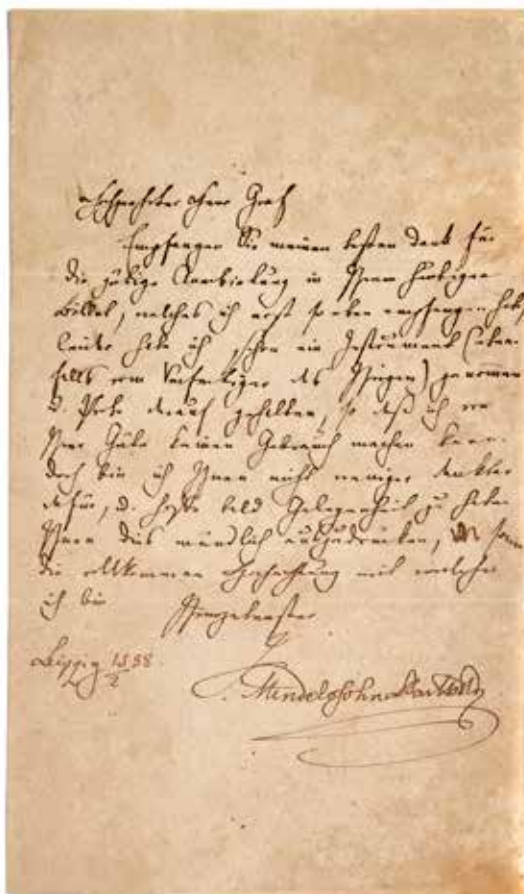 Hochgeehrter Herr Graf
Empfangen Sie meinen besten Dank für
die gütige Anerbietung in Ihrem heutigen
Billet, welches ich erst so eben empfangen habe,
leider habe ich schon ein Instrument (eben
falls vom Verfertiger des Ihrigen) genommen
u. Probe darauf gehalten, so daß ich von
Ihrer Güte keinen Gebrauch machen kann.
doch bin ich Ihnen nicht weniger dankbar
dafür, u. hoffe bald Gelegenheit zu haben
Ihnen dies mündlich auszudrücken,
die vollkommene Hochachtung mit welcher
ich bin
Leipzig
Mendelssohn Bartholdy